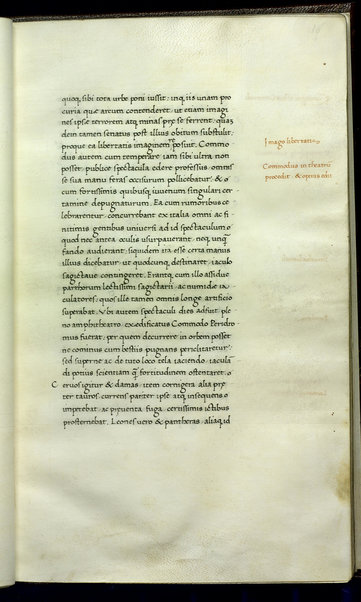 quoq; sibi tota urbe poni iussit. inq; iis unam pro
curia quæ arcum contenderet. ut etiam imagi
nes ipsæ terrorem atq; minas præ se ferrent. quas
dein tamen senatus post illius obitum substulit.
proque ea libertatis imaginem posuit. Commo
dus autem cum temperare iam sibi ultra non
posset. publice spectacula edere professus. omnis
se sua manu feras occisurum pollicebatur. & c̄
cum fortissimis quibusq; iuvenum singulari cer
tamine depugnaturum. Ea cum rumoribus ce
lebrarentur. concurrebant ex italia omni ac fi
nitimis gentibus universi ad id spectaculum
quod nec antea oculis usurpaverant. neq; unq̄
fando audierant. siquidem ita esse certa manus
illius dicebatur. ut quodcunq; destinaret. iaculo
sagittave contingeret. Erantq; cum illo assidue
parthorum lectissimi sagittarii. ac numidæ ia
culatores. quos ille tamen omnis longe artificio
superabat. Vbi autem spectaculi dies adfuit. ple
no amphitheatro. exædificatus Commodo Peridro
mus fuerat. per quem decurrere in orbem posset
ne cominus cum bestiis pugnans periclitaretur.
sed superne ac de tuto loco tela iaciendo. iacula
di potius scientiam q̄ fortitudinem ostentaret.
Cervos igitur & damas. item cornigera alia præ
ter tauros. currens pariter ipse atq; insequens
impetebat. ac preventa fuga. certissimis ictibus
prosternebat. Leones vero & pantheras. aliaq; id
Imago libertatis
Commodus in theatrū
procedit. &